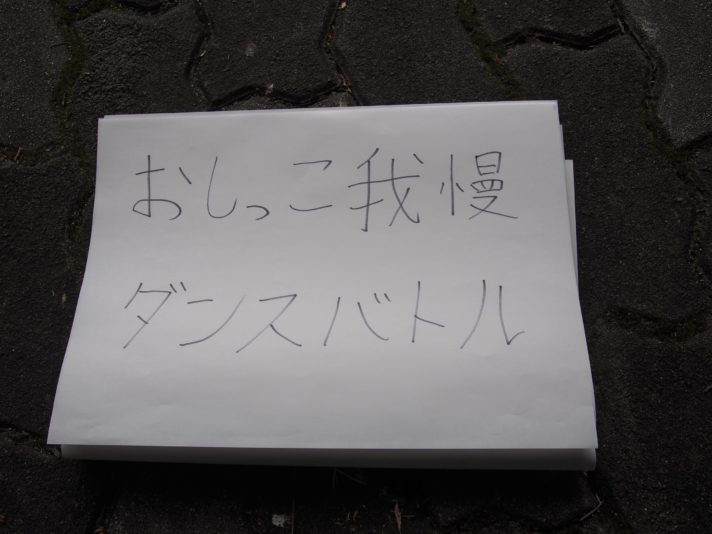 おしっこ我慢
ダンスバトル